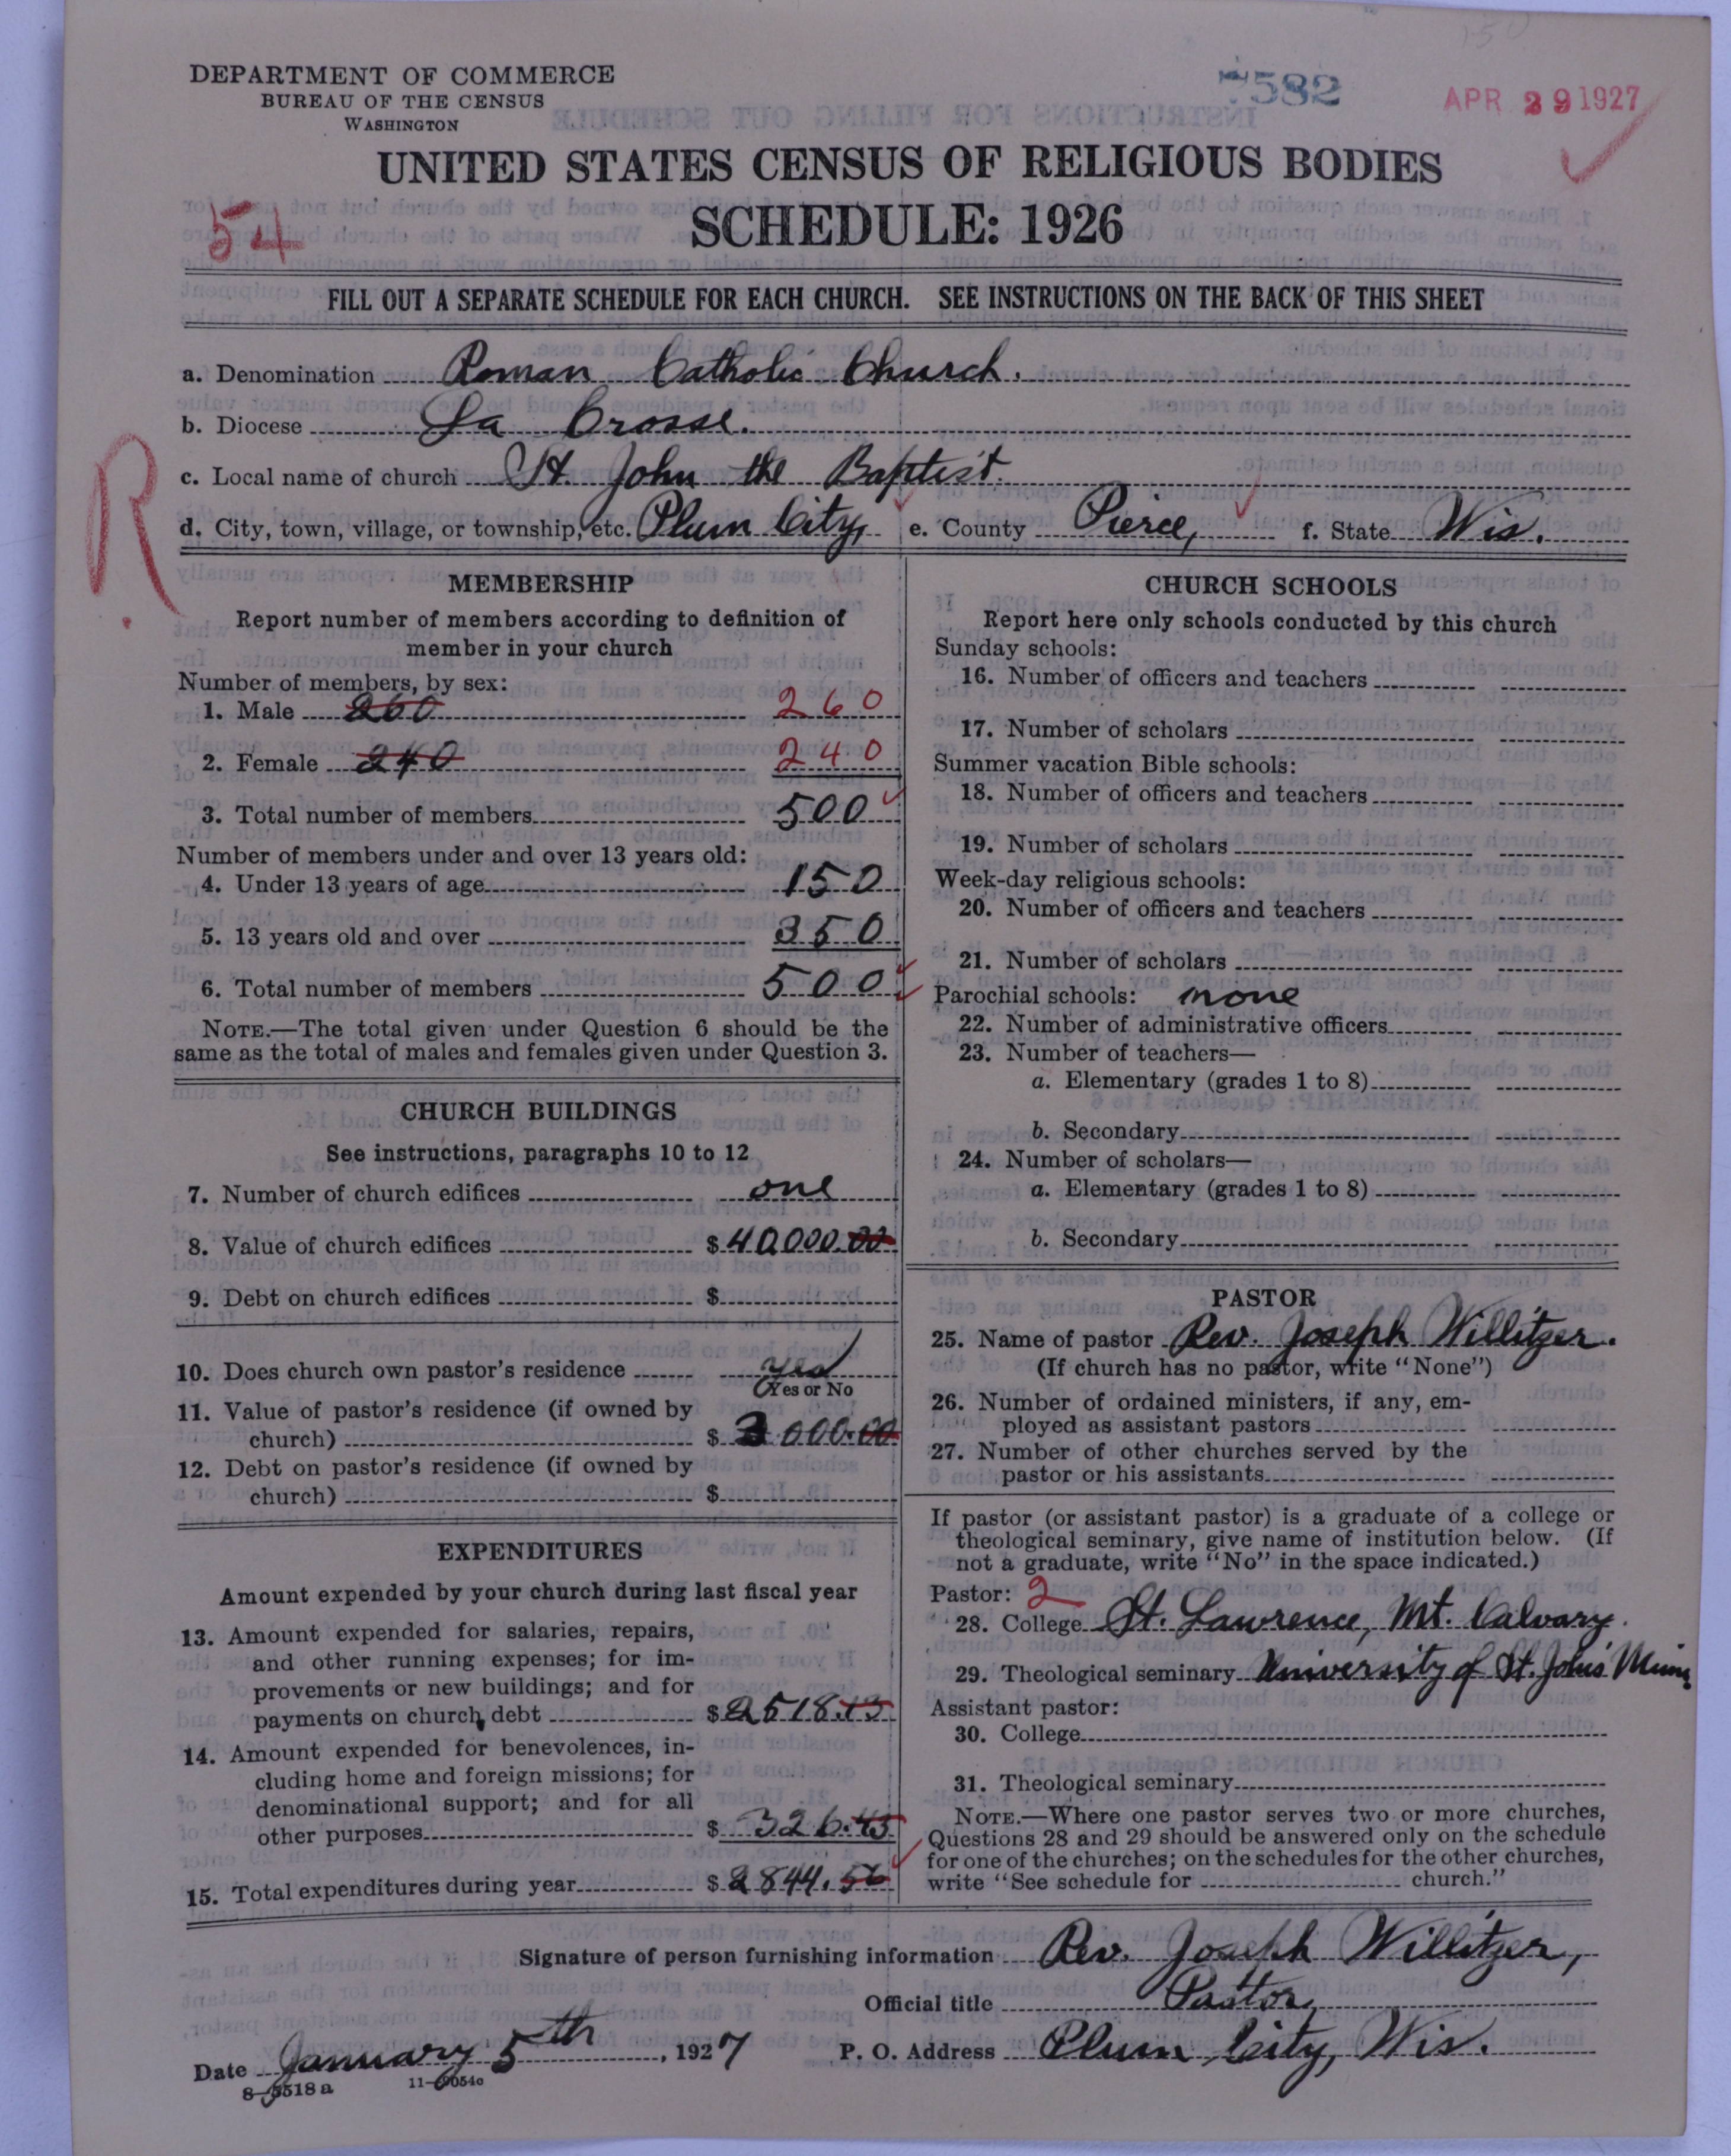 DEPARTMENT OF COMMERCE
BUREAU OF THE CENSUS
WASHINGTON
7582
APR 29 1927
UNITED STATES CENSUS OF RELIGIOUS BODIES
54
SCHEDULE: 1926
FILL OUT A SEPARATE SCHEDULE FOR EACH CHURCH. SEE INSTRUCTIONS ON THE BACK OF THIS SHEET
a. Denomination Roman Catholic Church.
b. Diocese La Crosse.
R
c. Local name of church St. John the Baptist.
d. City, town, village, or township, etc. Plum City, e. County Pierce, f. State Wis.
MEMBERSHIP
Report number of members according to definition of
member in your church
Number of members, by sex:
1. Male 260 260
2. Female 240 240
3. Total number of members 500
Number of members under and over 13 years old:
4. Under 13 years of age 150
5. 13 years old and over 350
6. Total number of members 500
NOTE.—The total given under Question 6 should be the
same as the total of males and females given under Question 3.
CHURCH BUILDINGS
See instructions, paragraphs 10 to 12
7. Number of church edifices one
8. Value of church edifices $40000.00
9. Debt on church edifices $
10. Does church own pastor's residence yes
Yes or No
11. Value of pastor's residence (if owned by
church) $3000.00
12. Debt on pastor's residence (if owned by
church) $
EXPENDITURES
Amount expended by your church during last fiscal year
13. Amount expended for salaries, repairs,
and other running expenses; for im-
provements or new buildings; and for
payments on church debt $2518.13
14. Amount expended for benevolences, in-
cluding home and foreign missions; for
denominational support; and for all
other purposes $326.43
15. Total expenditures during year $2844.56
CHURCH SCHOOLS
Report here only schools conducted by this church
Sunday schools:
16. Number of officers and teachers
17. Number of scholars
Summer vacation Bible schools:
18. Number of officers and teachers
19. Number of scholars
Week-day religious schools:
20. Number of officers and teachers
21. Number of scholars
Parochial schools: none
22. Number of administrative officers
23. Number of teachers—
a. Elementary (grades 1 to 8)
b. Secondary
24. Number of scholars—
a. Elementary (grades 1 to 8)
b. Secondary
PASTOR
25. Name of pastor Rev. Joseph Willitzer.
(If church has no pastor, write "None")
26. Number of ordained ministers, if any, em-
ployed as assistant pastors
27. Number of other churches served by the
pastor or his assistants
If pastor (or assistant pastor) is a graduate of a college or
theological seminary, give name of institution below. (If
not a graduate, write "No" in the space indicated.)
Pastor: 2
28. College St. Lawrence, Mt. Calvary.
29. Theological seminary University of St. Johs Minn
Assistant pastor:
30. College
31. Theological seminary
NOTE.—Where one pastor serves two or more churches,
Questions 28 and 29 should be answered only on the schedule
for one of the churches; on the schedules for the other churches,
write "See schedule for church."
Signature of person furnishing information Rev. Joseph Willitzer,
Official title Pastor,
Date January 5th, 1927 P. O. Address Plum City, Wis.
8-5518a 11-9054c